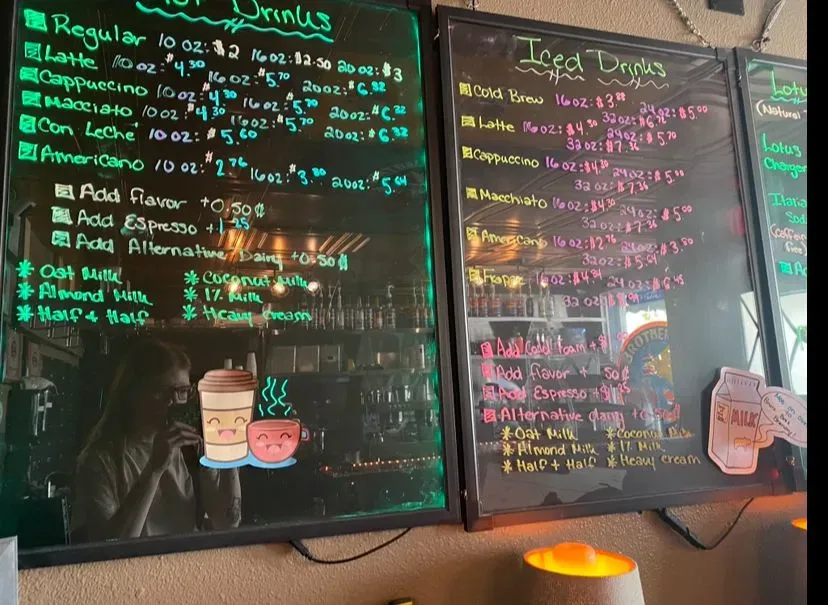 Hot Drinks
Regular 10 oz: $2 16 oz: $2.50 20 oz: $3
Latte 10 oz: $4.30 16 oz: $5.70 20 oz: $6.32
Cappuccino 10 oz: $4.30 16 oz: $5.70 20 oz: $6.32
Macciato 10 oz: $4.30 16 oz: $5.70 20 oz: $6.32
Con Leche 10 oz: $5.60
Americano 10 oz: $2.76 16 oz: $3.80 20 oz: $5.04
Add flavor +0.50¢
Add Espresso +1.25
Add Alternative Dairy +0.50¢
* Oat Milk * Coconut Milk
* Almond Milk * 1% Milk
* Half + Half * Heavy Cream
Iced Drinks
Cold Brew 16 oz: $3 24 oz: $5.00
32 oz:
Latte 16 oz: $4.30 24 oz: $5.70
32 oz: $7.36
Cappuccino 16 oz: $4.30 24 oz: $5.00
32 oz: $7.36
Macchiato 16 oz: $4.30 24 oz: $5.00
32 oz: $7.36
Americano 16 oz: $2.76 24 oz: $3.80
32 oz: $5.04
Frappe 16 oz: 24 oz:
32 oz:
Add Cold foam +$1
Add flavor + 50¢
Add Espresso +$1.25
Alternative dairy +0.50¢
* Oat Milk * Coconut Milk
* Almond Milk * 1% Milk
* Half + Half * Heavy cream
MILK
BROTHER
(Natural
Lotus
Charger
Soda
(caffeine
free)